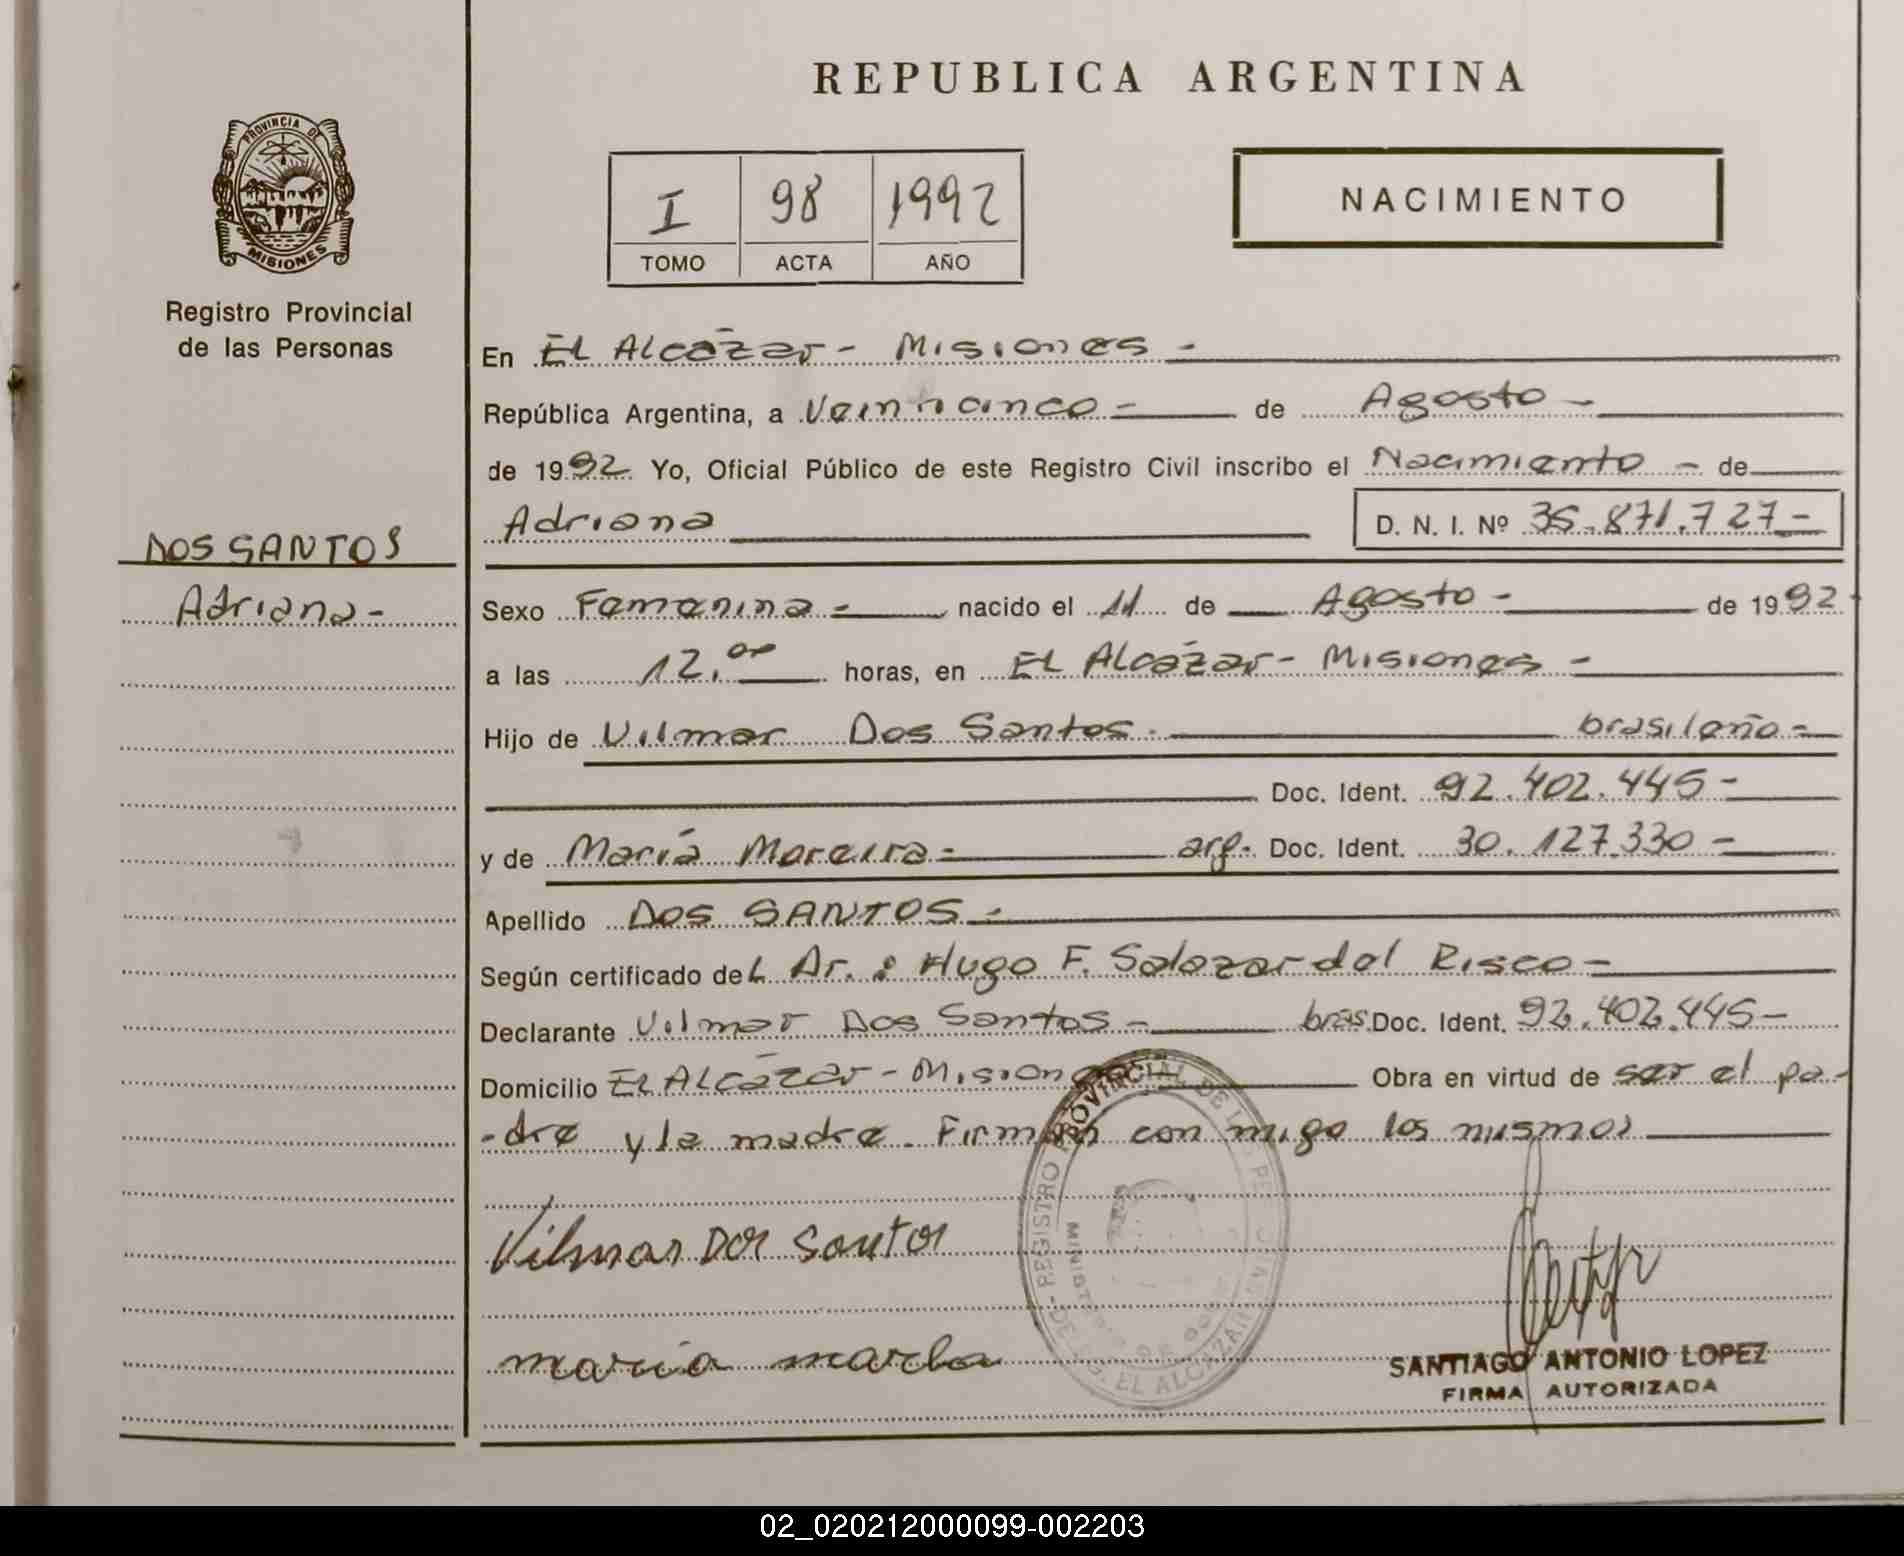 REPUBLICA ARGENTINA
PROVINCIA DE
MISIONES
Registro Provincial
de las Personas
I 98 1992
TOMO ACTA AÑO
NACIMIENTO
DOS SANTOS
Adriana-
En El Alcázar - Misiones -
República Argentina, a Veinticinco - de Agosto -
de 1992 Yo, Oficial Público de este Registro Civil inscribo el Nacimiento - de
Adriana D. N. I. Nº 35.871.727-
Sexo Femenina - nacido el 11 de Agosto - de 1992
a las 12,00 horas, en El Alcázar - Misiones -
Hijo de Vilmar Dos Santos. brasileño -
Doc. Ident. 92.402.445-
y de María Moreira - arg. Doc. Ident. 30.127.330 -
Apellido DOS SANTOS -
Según certificado del Dr.: Hugo F. Salazar del Risco -
Declarante Vilmar Dos Santos - bras. Doc. Ident. 92.402.445-
Domicilio El Alcázar - Misiones Obra en virtud de ser el pa-
-dre y la madre. Firman con migo los mismos
Vilmar Dos Santos
maria
REGISTRO PROVINCIAL DE
EL ALCAZAR
SANTIAGO ANTONIO LOPEZ
FIRMA AUTORIZADA
02_020212000099-002203